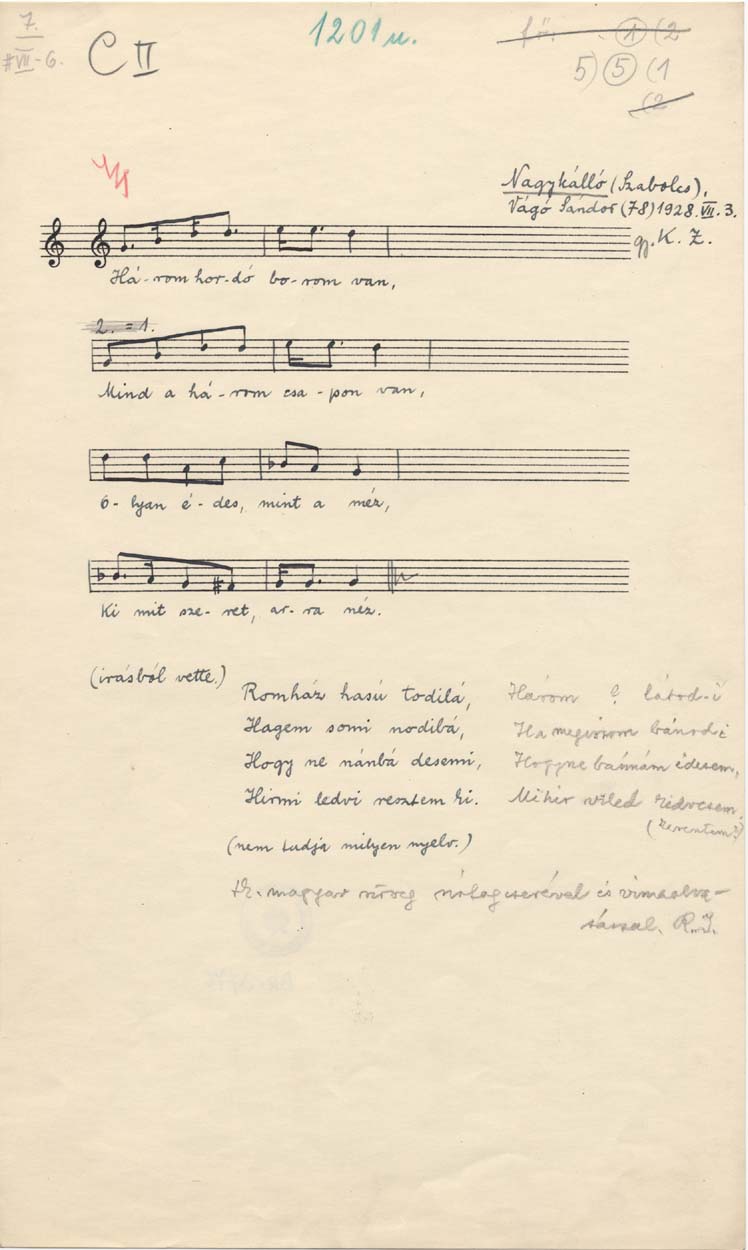 7.
#VII-6.
C II
1201 u.
5) 5 (1
(2
Nagykálló (Szabolcs),
Vágó Sándor (78) 1928. VII. 3.
gy. K. Z.
Há-rom hor-dó bo-rom van,
2. = 1.
Mind a há-rom csa-pon van,
o-lyan é-des, mint a méz,
Ki mit sze-ret, ar-ra néz.
(irásból vette.)
Romház hasú todilá, Három ? látod-i
Hagem somi nodibá, Ha megívsom bánod-i
Hogy ne nánbá desemi, Hogyne bánnám édesem,
Hirmi ledvi resztem ki. Mikor véled
(nem tudja milyen nyelv.)
magyar szöveg szótagcserével és
R. J.